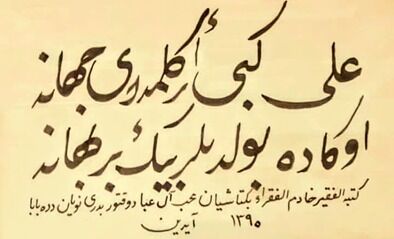 علی کبی أر کلمدی جهانه
اوکا ده بولدیلر بیک بر بهانه
کتبه الفقیر خادم الفقراء بکتاشیان محب آل عبا دوقتور بدری نویان دده بابا
۱۳۹۵ آیدین